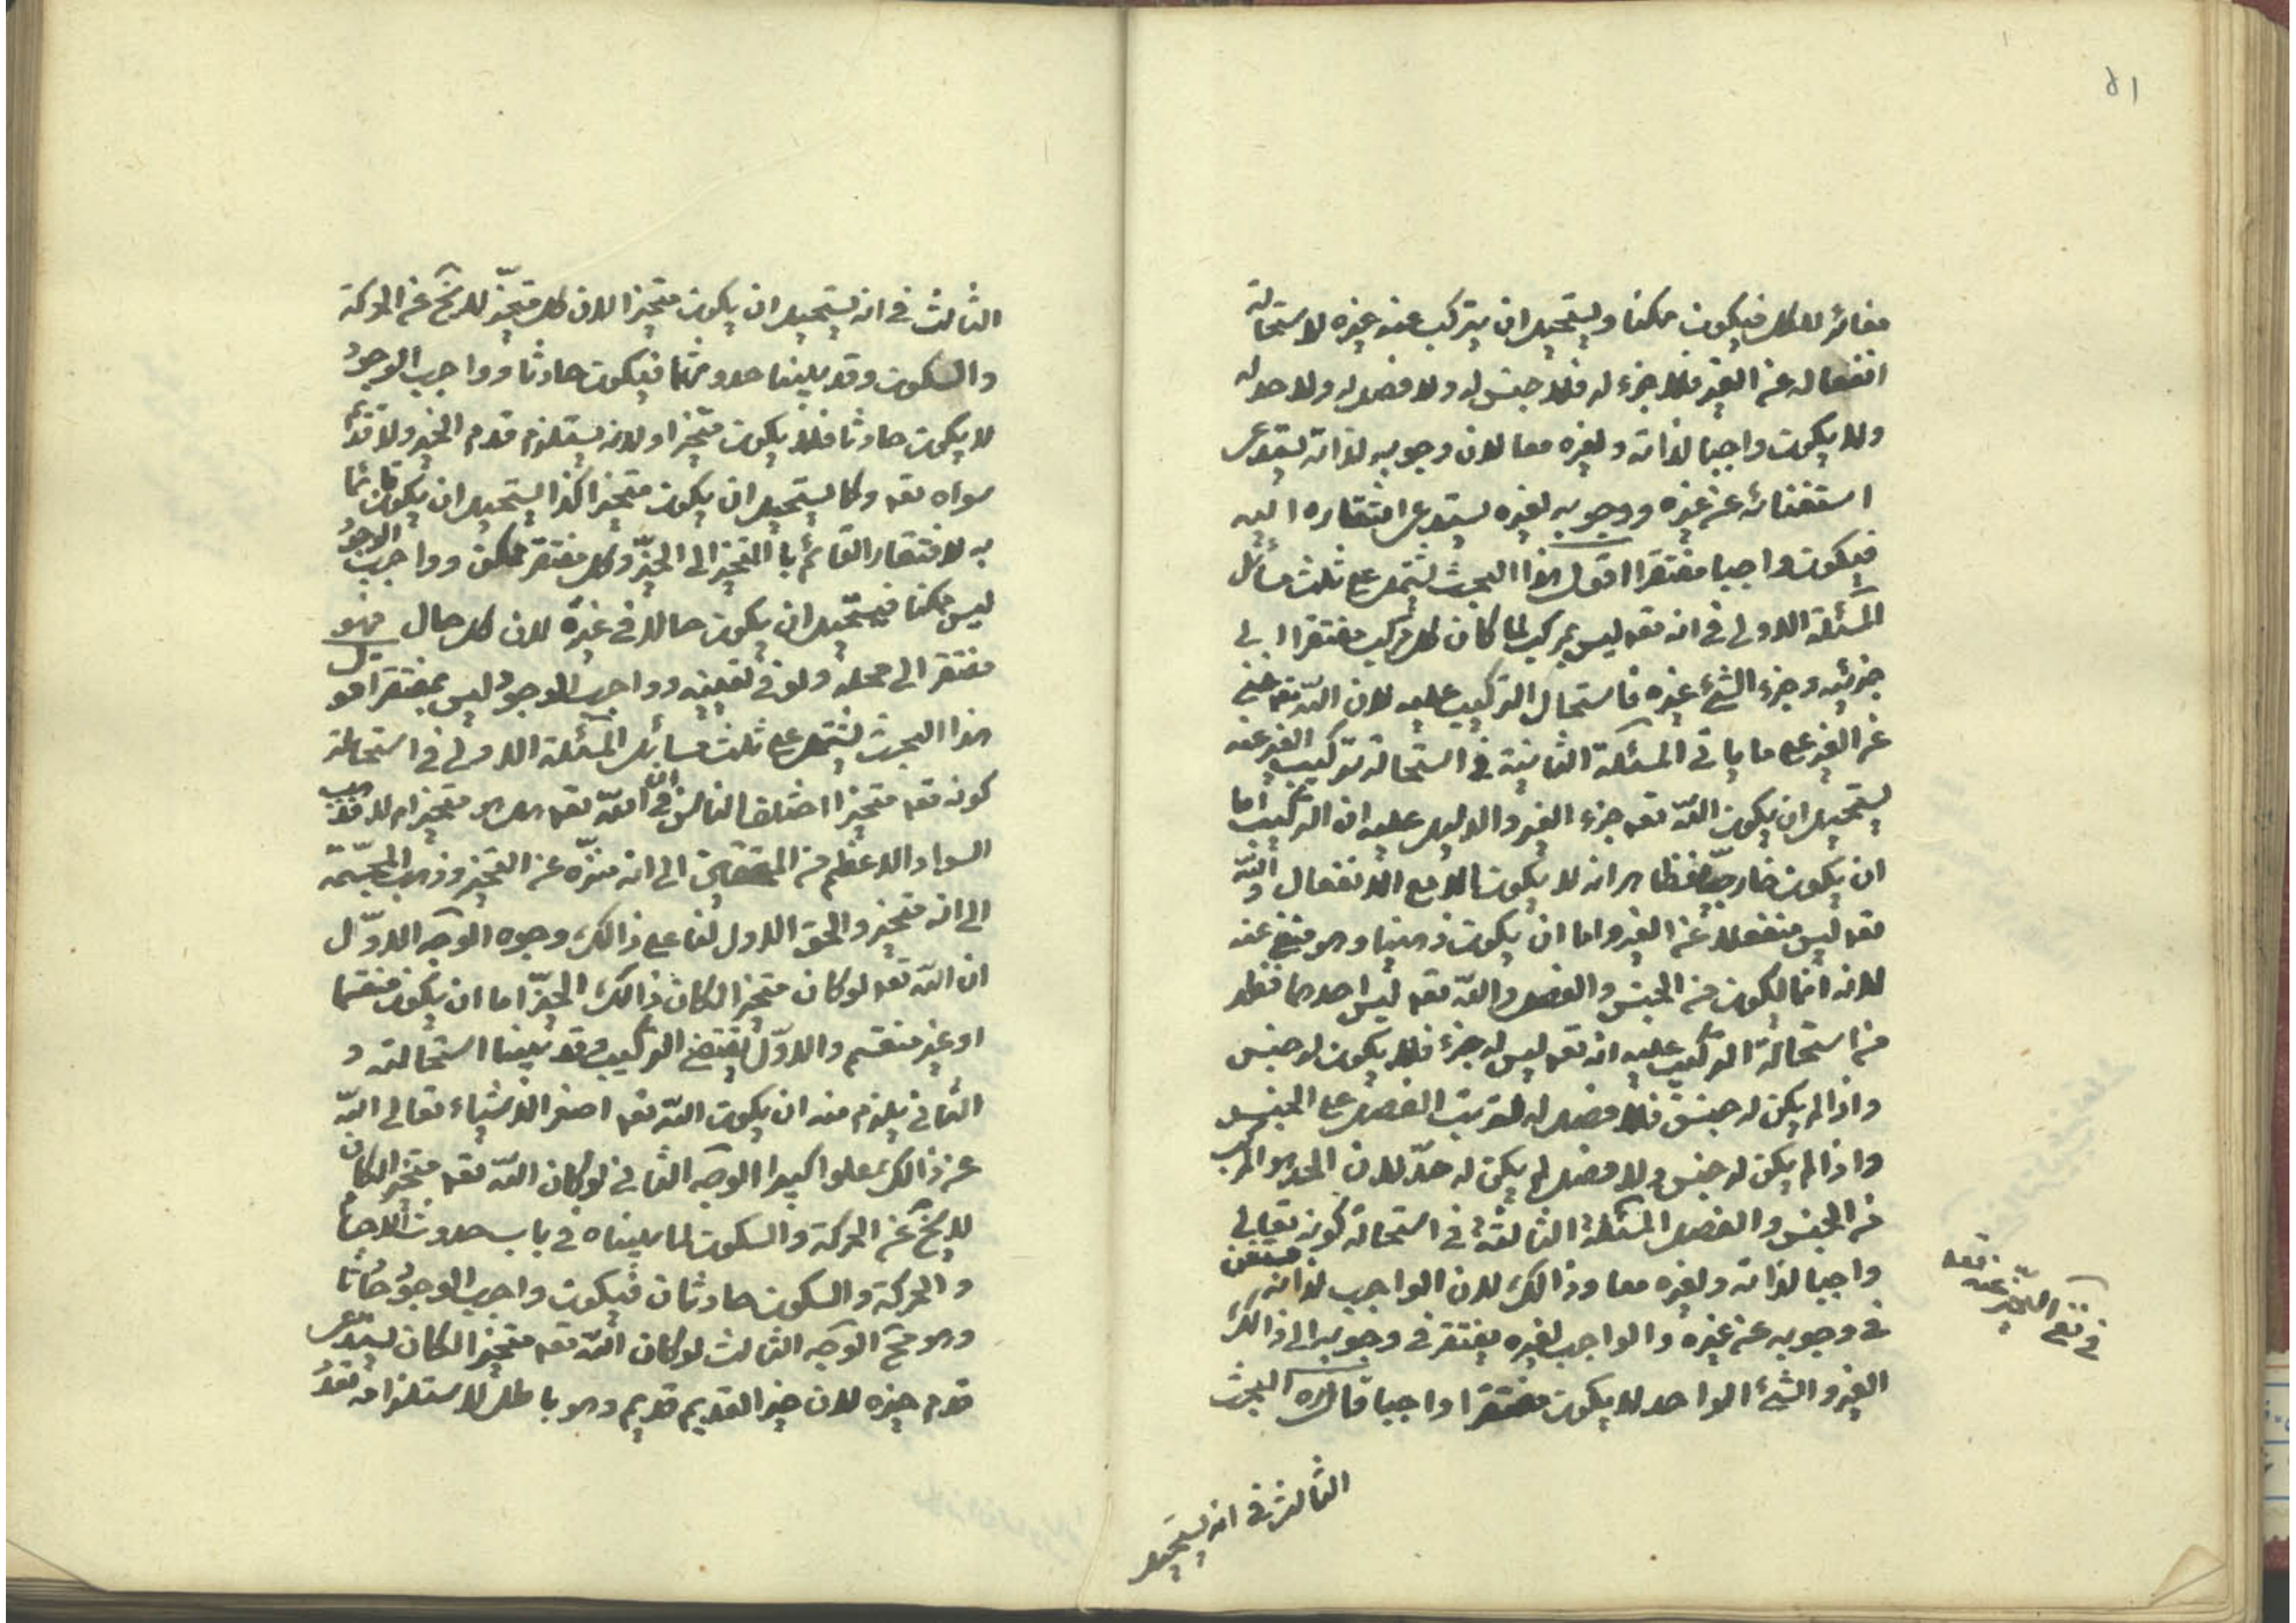 ٥١
مغائر للكل فيكون ممكنا ويستحيل ان يتركب عنه غيره لاستحالة
انفعاله عن الغير فلا جزء له فلا جنس له ولا فصل له ولا حد له
ولا يكون واجبا لذاته ولغيره معا لان وجوبه لذاته يستدعى
استغنائه عن غيره ووجوبه لغيره يستدعى افتقاره اليه
فيكون واجبا مفتقرا اقول هذا البحث يشتمل على ثلث مسائل
المسئلة الاولى في انه تعه ليس بمركب لما كان كل مركب مفتقرا الى
جزئيه وجزء الشئ غيره فاستحال التركيب عليه لان الله تعه غنى
عن الغير على ما ياتى المسئلة الثانية في استحالة تركيب الغير عنه
يستحيل ان يكون الله تعه جزء الغير والدليل عليه ان التركيب اما
ان يكون خارجيا فظاهر انه لا يكون الا مع الانفعال والله
تعه ليس منفعلا عن الغير واما ان يكون ذهنيا وهو منفى عنه
لانه انما يكون من الجنس والفصل والله تعه ليس احدهما فظهر
من استحالة التركيب عليه انه تعه ليس له جزء فلا يكون له جنس
واذا لم يكن له جنس فلا فصل له لترتب الفصل على الجنس
واذا لم يكن له جنس ولا فصل لم يكن له حدّ لان الحد هو المركب
من الجنس والفصل المسئلة الثالثة في استحالة كونه تعالى
واجبا لذاته ولغيره معا وذالك لان الواجب لذاته مستغن
في وجوبه عن غيره والواجب لغيره يفتقر في وجوبه الى ذالك
الغير والشئ الواحد لا يكون مفتقرا واجبا قال ره البحث
في نفى التحيز عنه تعه
الثالث في انه يستحيل
الثالث في انه يستحيل ان يكون متحيزا لان كل متحيّز لا يخ عن الحركة
والسكون وقد بيّنا حدوثهما فيكون حادثا وواجب الوجود
لا يكون حادثا فلا يكون متحيزا ولانه يستلزم قدم الحيز ولا قديم
سواه تعه وكما يستحيل ان يكون متحيزا كذا يستحيل ان يكون قائما
به لافتقار القائم با المتحيز الى الحيّز وكل مفتقر ممكن وواجب الوجود
ليس ممكنا فيستحيل ان يكون حالا في غيره لان كل حال فهو
مفتقر الى محله ولو في تعيينه وواجب الوجود ليس بمفتقر اقول
هذا البحث يشتمل على ثلث مسائل المسئلة الاولى في استحالة
كونه تعه متحيزا اختلف الناس في ان الله تعه هل هو متحيز ام لا فذهب
السواد الاعظم من المحققين الى انه منزّه عن التحيز وذهب المجسّمة
الى انه متحيز والحق الاول لنا على ذالك وجوه الوجه الاوّل
ان الله تعه لو كان متحيزا لكان ذالك الحيّز اما ان يكون منقسما
او غير منقسم والاوّل يقتضى التركيب وقد بيّنا استحالته و
الثانى يلزم منه ان يكون الله تعه اصغر الاشياء تعالى الله
عن ذالك علوا كبيرا الوجه الثانى لو كان الله تعه متحيزا لكان
لا يخ عن الحركة والسكون لما بيناه في باب حدوث الاجسام
والحركة والسكون حادثان فيكون واجب الوجود حادثا
وهو مح الوجه الثالث لو كان الله تعه متحيزا لكان يستدعى
قدم حيزه لان حيز القديم قديم وهو باطل لاستلزامه تعدد